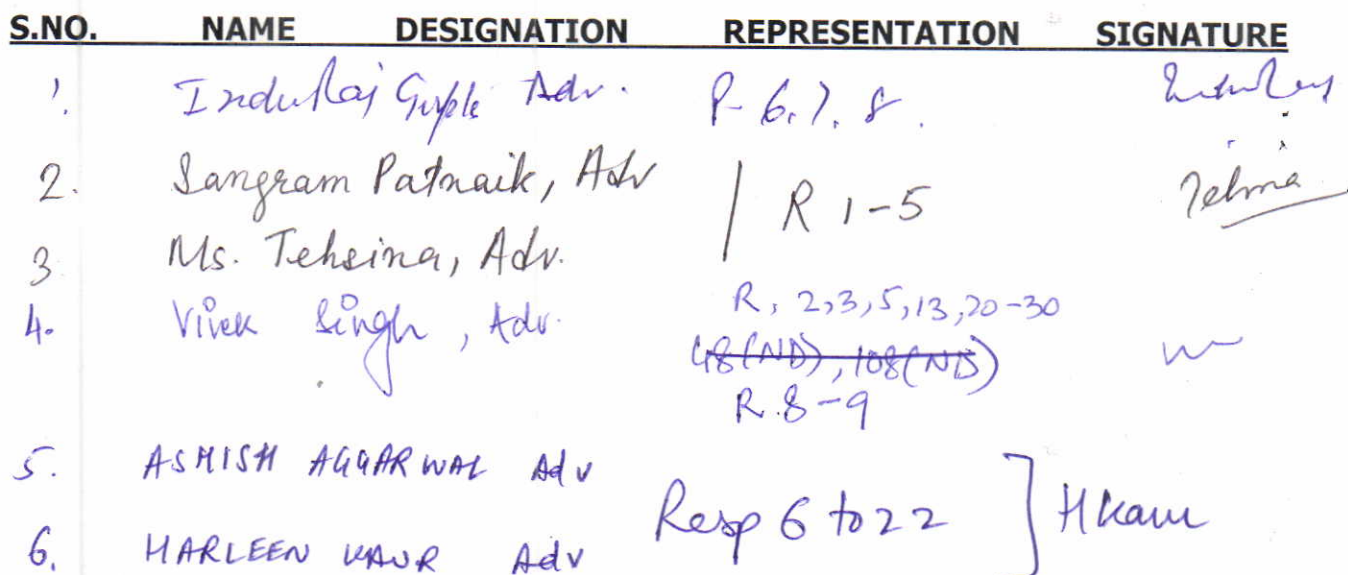 S.NO. NAME DESIGNATION REPRESENTATION SIGNATURE
1. InduRaj Gupta Adv. P- 6.7.8.
2. Sangram Patnaik, Adv
R 1-5
3 Ms. Tehsina, Adv.
4. Vivek Singh, Adv. R, 2,3,5,13,20-30
48(ND), 108(ND)
R.8-9
5. ASHISH AGGARWAL Adv
Resp 6 to 22 ] HKaur
6. HARLEEN KAUR Adv